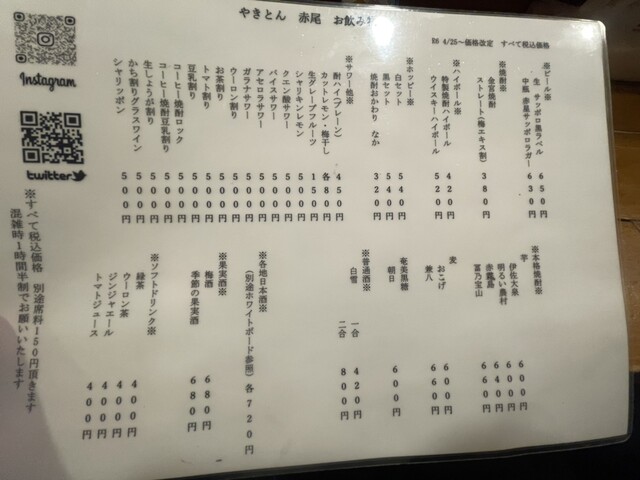 やきとん 赤尾 お飲み
R6 4/25~価格改定 すべて税込価格
※ビール※
生 サッポロ黒ラベル 650円
中瓶 赤星サッポロラガー 630円
※焼酎※
金宮焼酎
ストレート(梅エキス割) 380円
※ハイボール※
特製焼酎ハイボール 420円
ウイスキーハイボール 520円
※ホッピー※
白セット 540円
黒セット 540円
焼酎おかわり なか 320円
※サワー他※
酎ハイ(プレーン) 450円
カットレモン・梅干し 各80円
生グレープフルーツ 150円
シャリキンレモン 500円
クエン酸サワー 500円
バイスサワー 500円
アセロラサワー 500円
ガラナサワー 500円
ウーロン割り 500円
お茶割り 500円
トマト割り 500円
豆乳割り 500円
コーヒー焼酎ロック 500円
コーヒー焼酎豆乳割り 500円
生しょうが割り 500円
かち割りグラスワイン 500円
シャリッポン 500円
※本格焼酎※
芋
伊佐大泉 600円
明るい農村 600円
赤霧島 640円
富乃宝山 660円
麦
おこげ 600円
兼八 660円
奄美黒糖
朝日 600円
※普通酒※
白雪 一合 420円
二合 800円
※各地日本酒※
(別途ホワイトボード参照) 各720円
※果実酒※
梅酒 680円
季節の果実酒 680円
※ソフトドリンク※
緑茶 400円
ウーロン茶 400円
ジンジャエール 400円
トマトジュース 400円
Instagram
twitter
※すべて税込価格 別途席料150円頂きます
混雑時1時間半制でお願いいたします